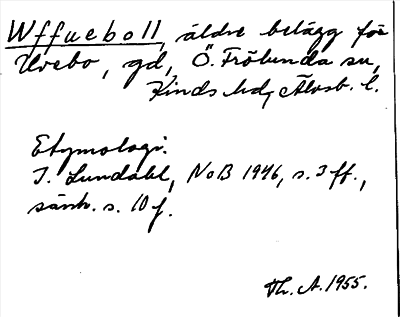 Wffueboll, äldre belägg för
Uvebo, gd, Ö. Frölunda sn,
Kinds hd, Älvsb. l.
Etymologi.
I. Lundahl, NoB 1946, s. 3 ff.,
särsk. s. 10 f.
Th. A. 1955.